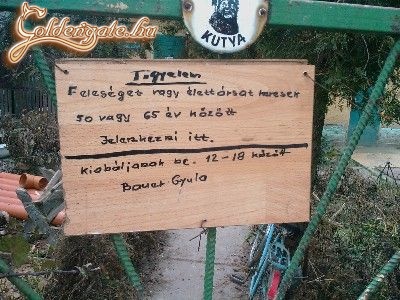 Goldengate.hu
KUTYA
Figyelem
Feleséget vagy élettársat keresek
50 vagy 65 év között
Jelentkezni itt.
Kiabáljanak be. 12-18 között
Bauer Gyula